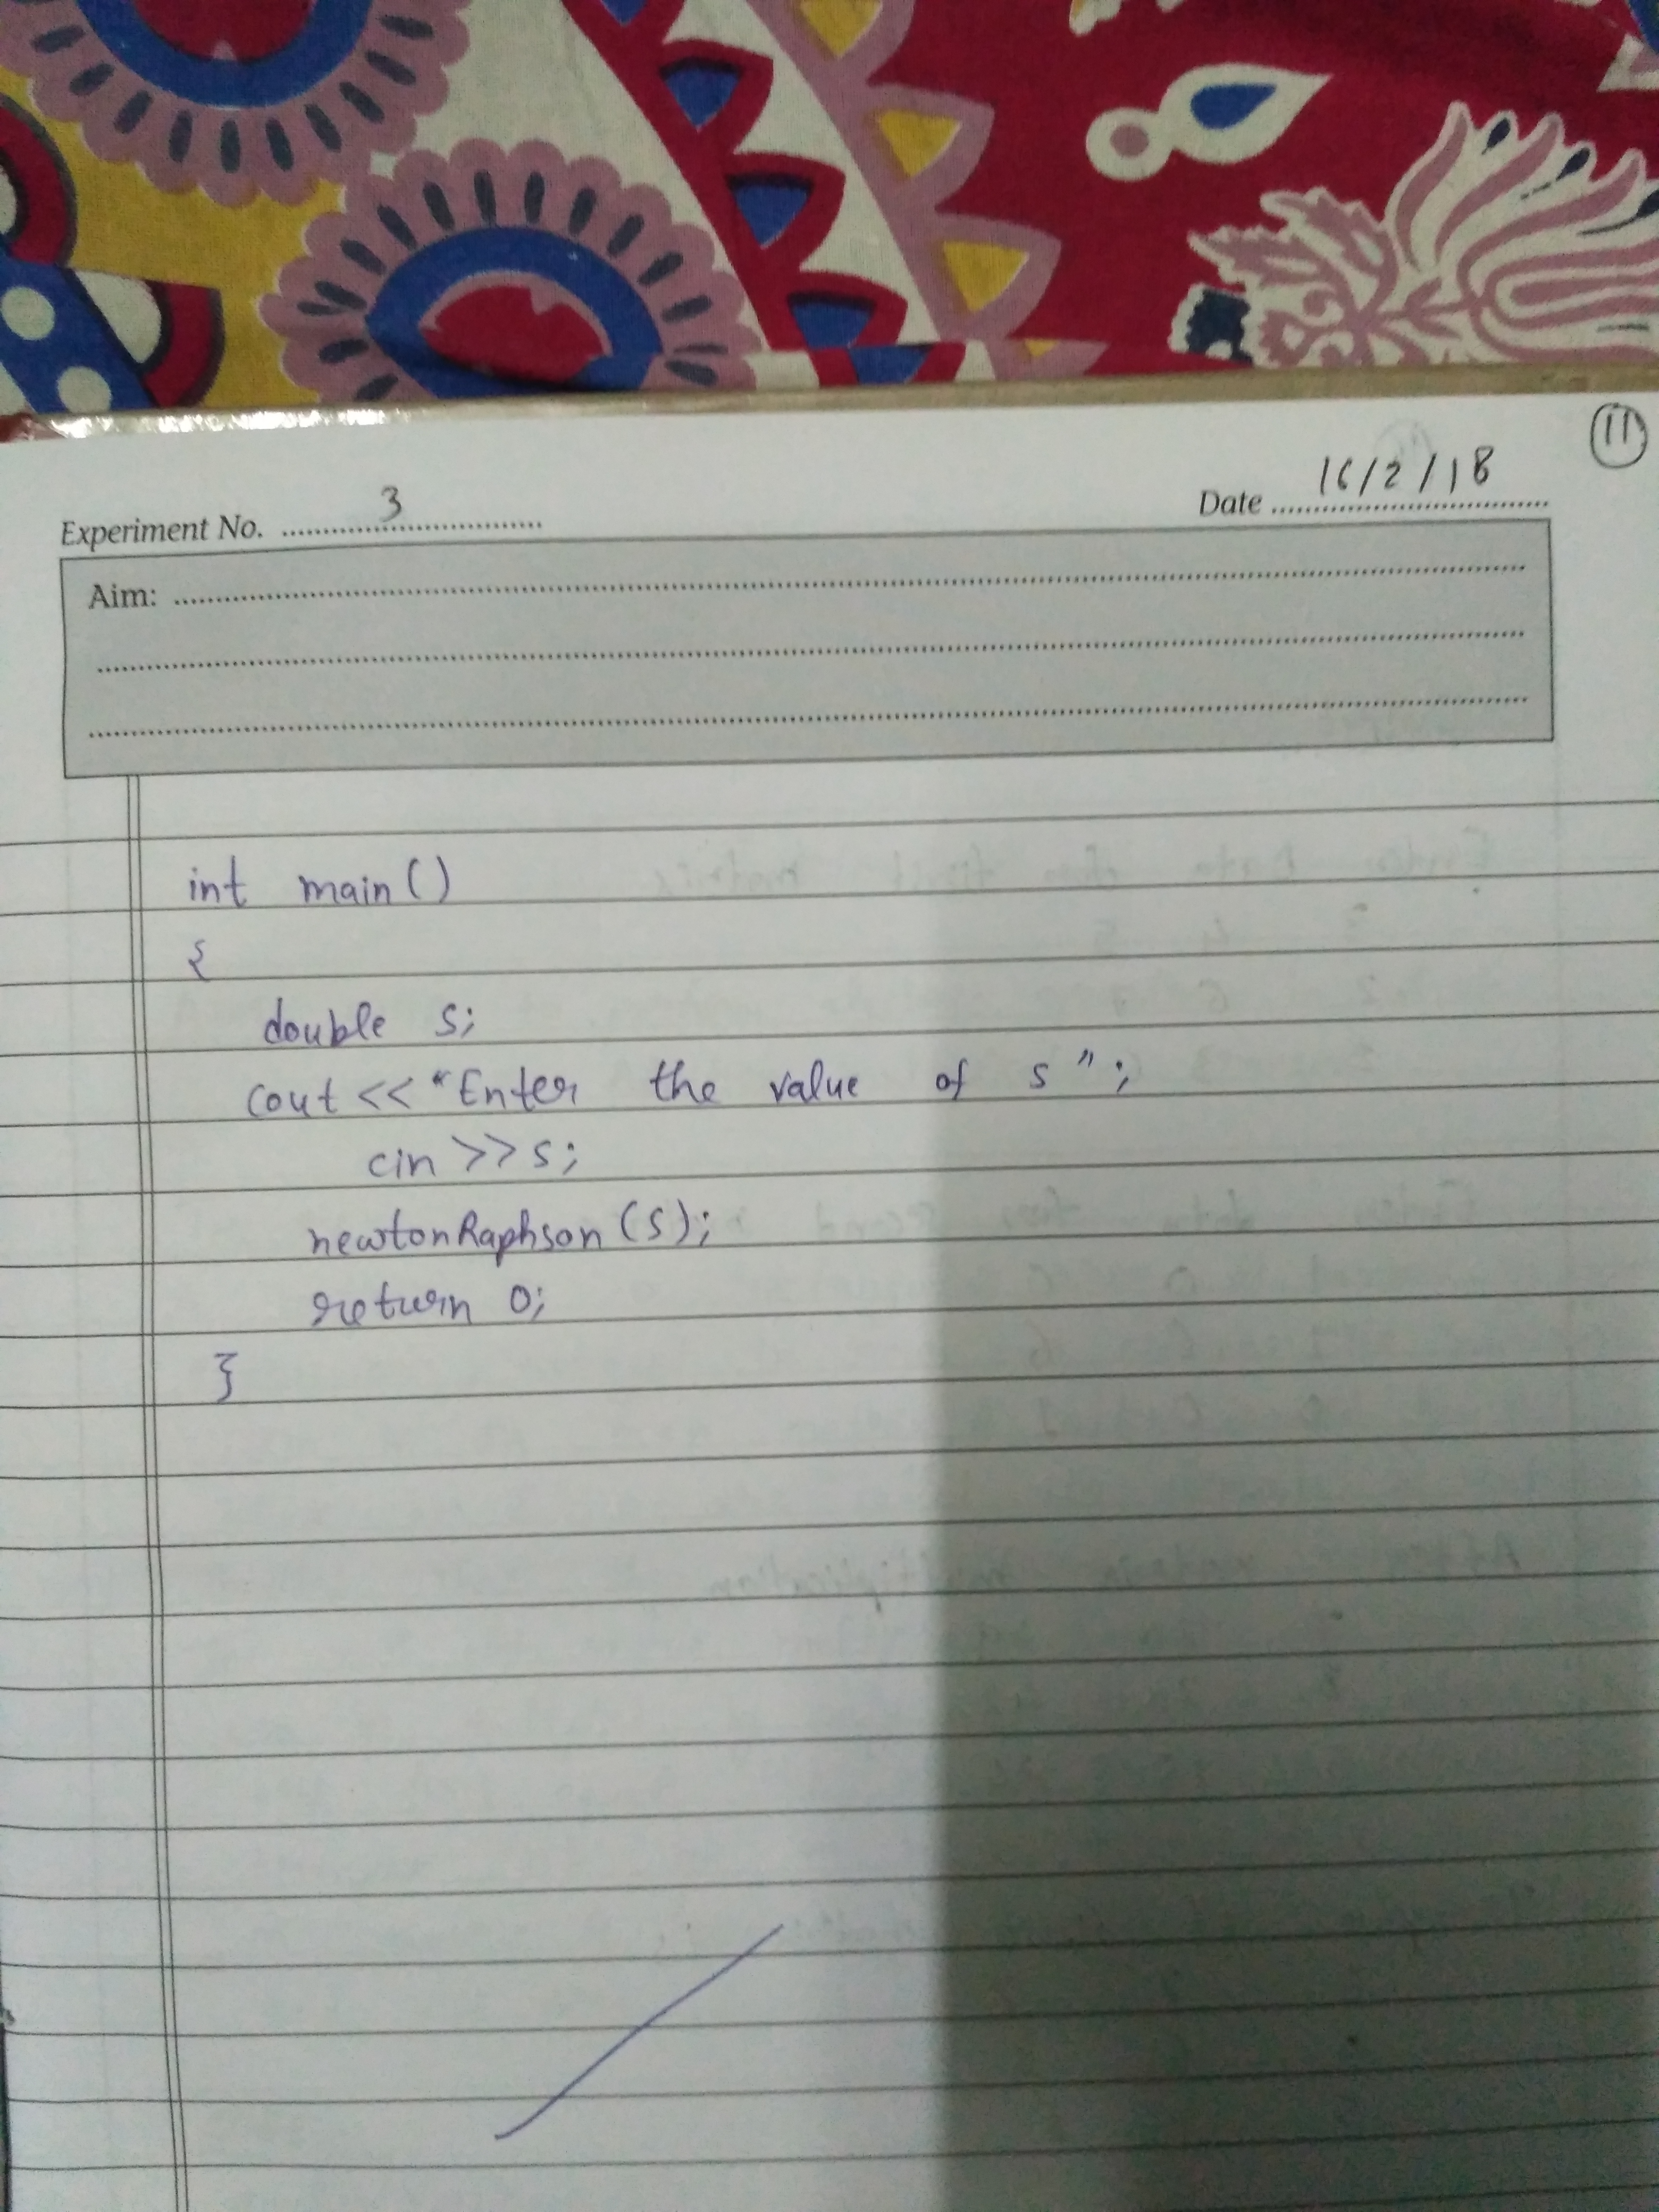 11
Experiment No. 3
Date 16/2/18
Aim:
int main()
{
double s;
cout << "Enter the value of s";
cin >> s;
newtonRaphson(s);
return 0;
}